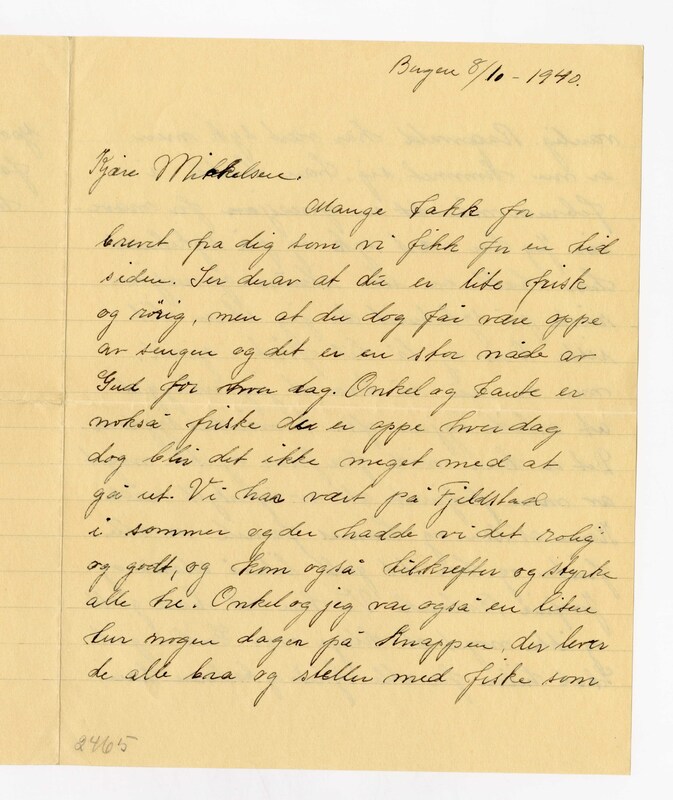 Bergen 8/10 - 1940.
Kjære Mikkelsen.
Mange takk for
brevet fra dig som vi fikk for en tid
siden. Ser derav at du er lite frisk
og rörig, men at du dog får være oppe
av sengen og det er en stor nåde av
Gud for hver dag. Onkel og tante er
nokså friske de er oppe hver dag
dog blir det ikke meget med at
gå ut. Vi har vært på Fjeldstad
i sommer og der hadde vi det rolig
og godt, og kom også til krefter og styrke
alle tre. Onkel og jeg var også en liten
tur nogen dager på Knappen, der lever
de alle bra og steller med fiske som
2465